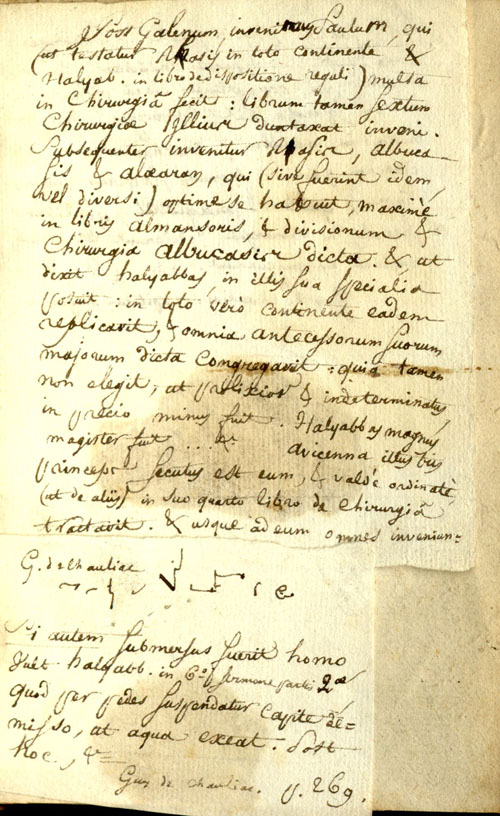 Post Galenum, invenimus Paulum, qui
(ut testatur Rhasis in toto continente &
Halyab. in libro de dispositione regali) multa
in Chirurgiâ fecit: librum tamen sextum
Chirurgiæ Illius duntaxat inveni.
Subsequenter invenitur Rhasis, albuca-
sis & alcaran, qui (sive fuerint idem,
vel diversi) optime se habuit, maximè
in libris almansoris, & divisionum &
Chirurgia albucasis dicta. & ut
dixit halyabbas, in illis sua specialia
posuit: in toto verò continente eadem
replicavit, & omnia antecessorum suorum
majorum dicta congregavit: quia tamen
non elegit, ut prolixior & indeterminatus,
in precio minus fuit. Halyabbas magnus
magister fuit .... & avicenna illustris
princeps secutus est eum, & valdè ordinatè
(ut de aliis) in suo quarto libro de Chirurgiâ
tractavit. & usque ad eum omnes inveniun=
G. de Chauliac
Si autem submersus fuerit homo
halyabb. in 6.º sermone parti 2æ
quod per pedes suspendatur capite de=
misso, ut aqua exeat. Post
hoc, &
Guy de Chauliac. p. 269.